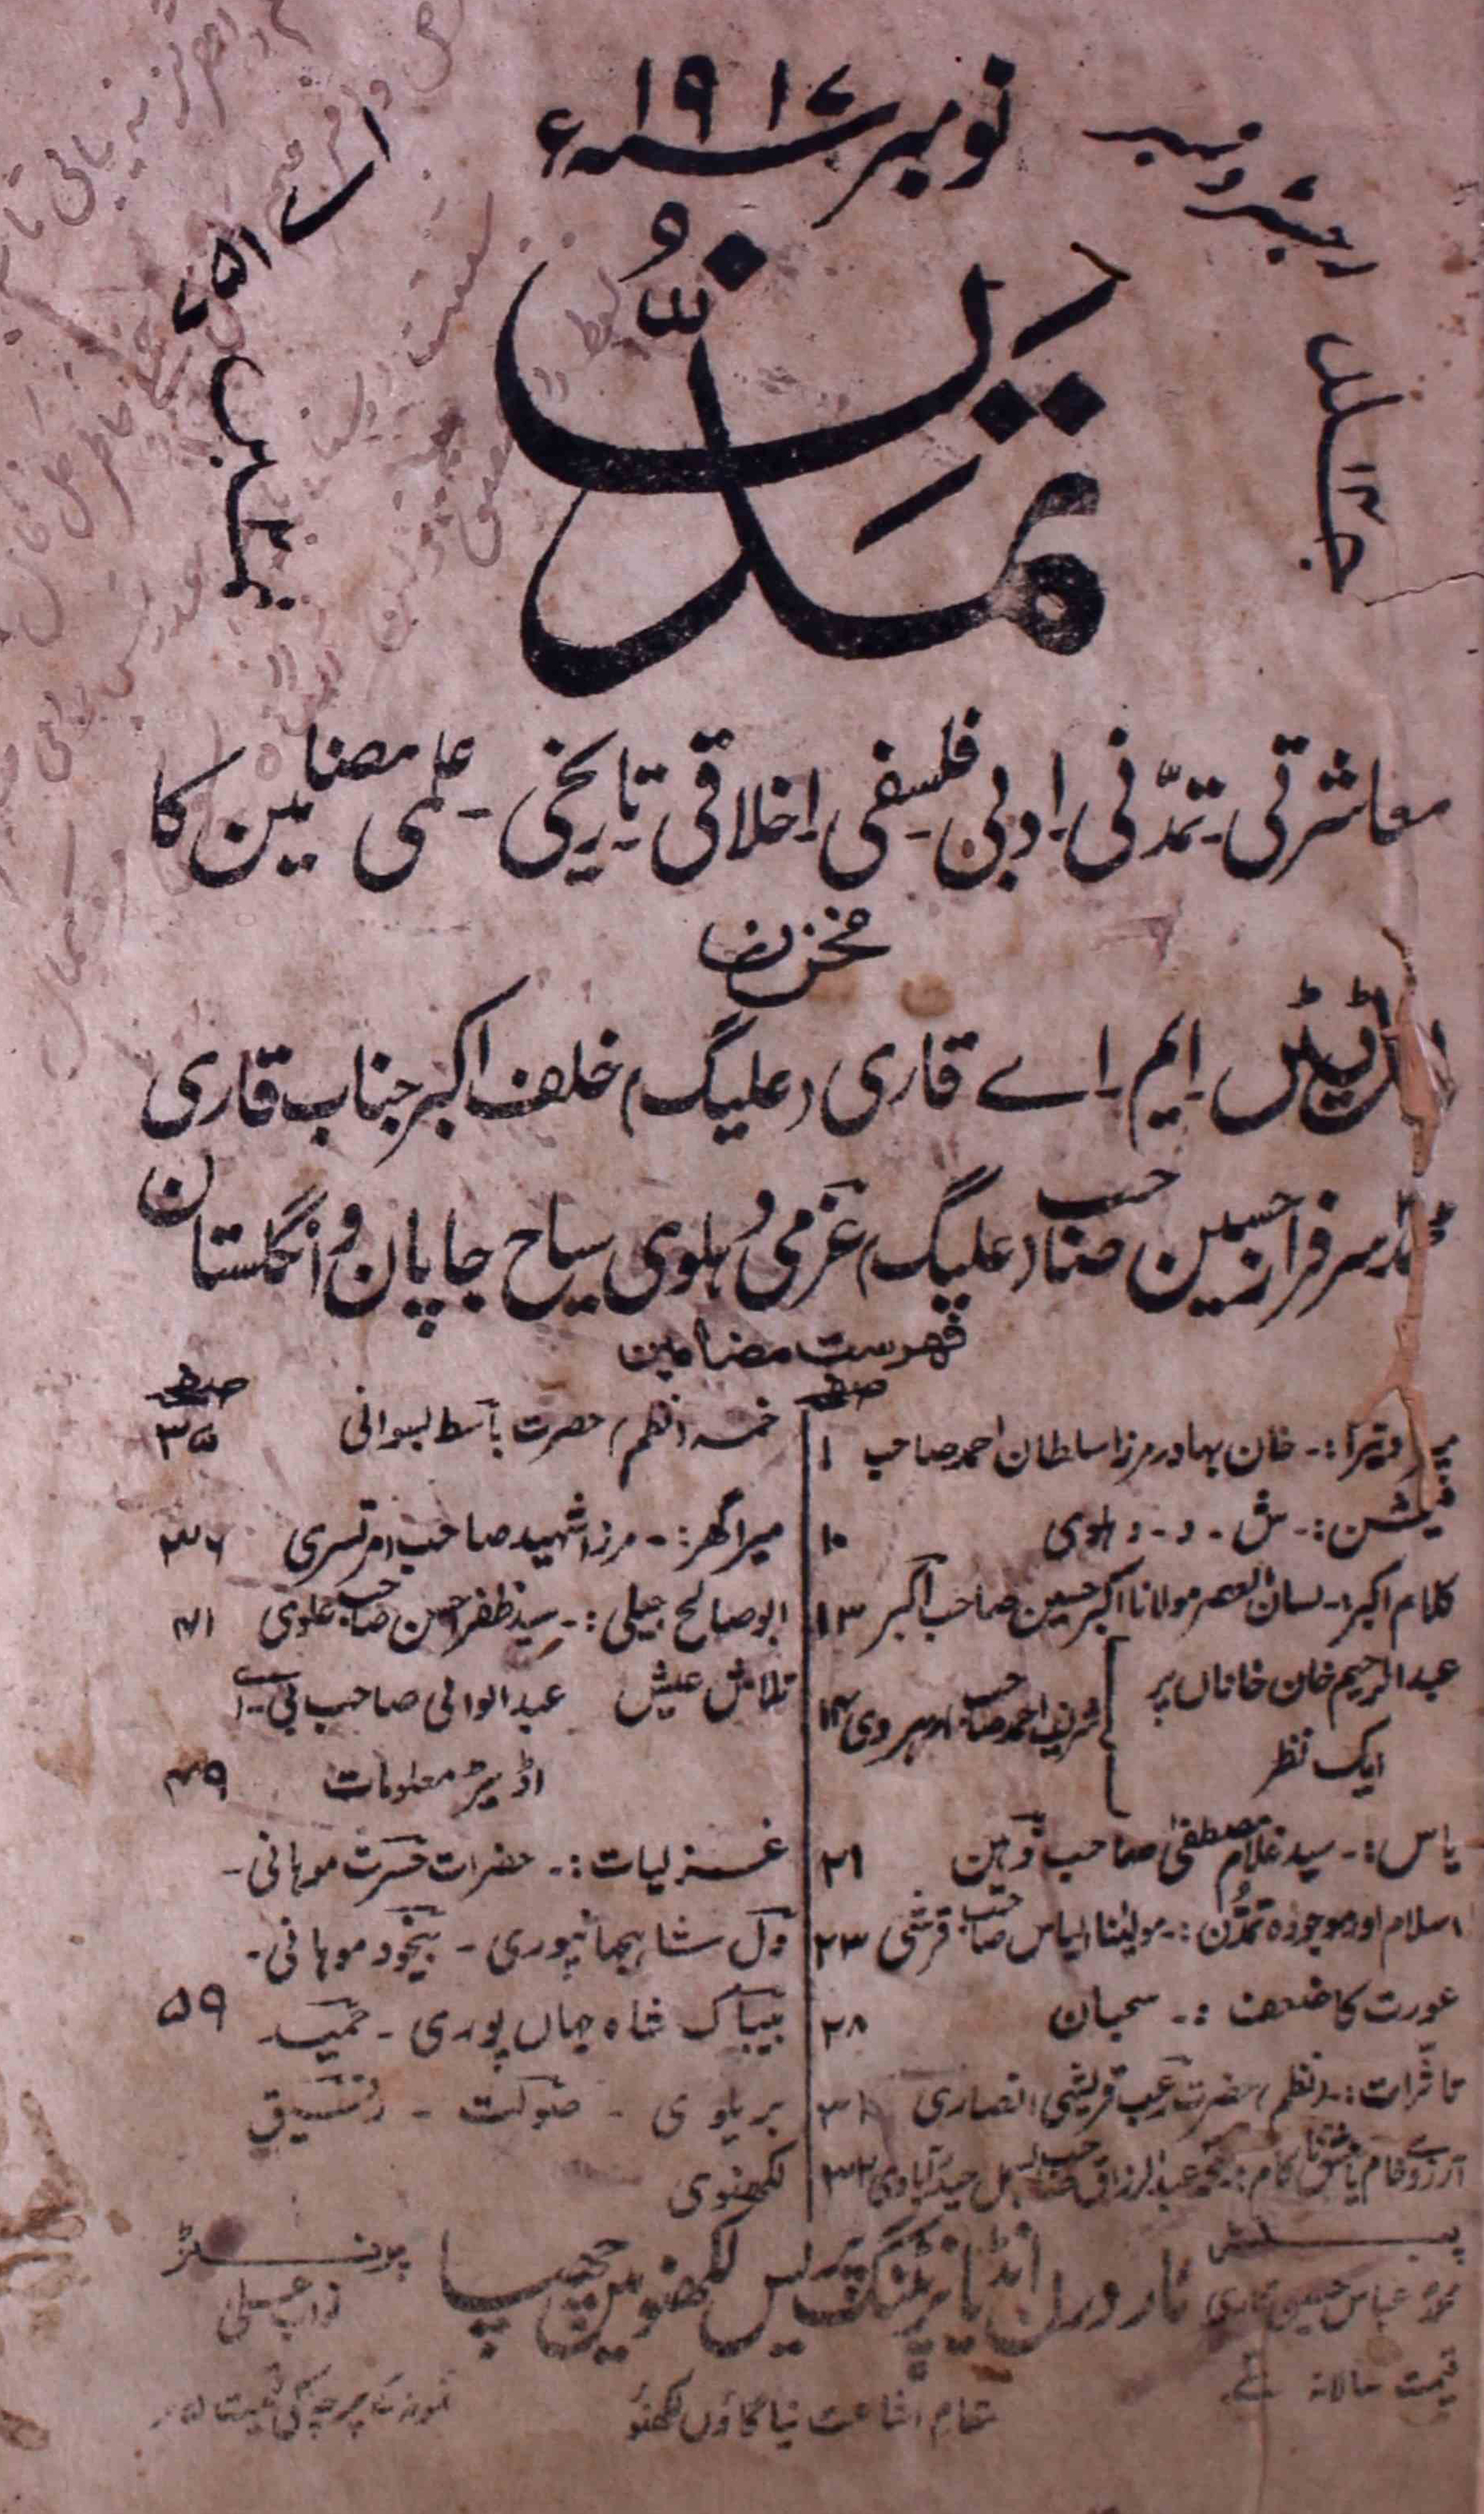 نومبر ۱۹۱۷ء
اے
۵۱
تمدّن
معاشرتی۔ تمدّنی۔ ادبی۔ فلسفی۔ اخلاقی۔ تاریخی۔ علمی مضامین کا
مخزن
اڈیٹر۔ ایم۔ اے قاری (علیگ) خلف اکبر جناب قاری
سرفراز حسین صاحب (علیگ) عزمی دہلوی سیاح جاپان و انگلستان
فہرست مضامین
صفحہ
خان بہادر مرزا سلطان احمد صاحب ۱
فیشن:۔ ش۔ د۔ دہلوی ۱۰
کلام اکبر:۔ لسان العصر مولانا اکبر حسین صاحب اکبر ۱۳
عبدالرحیم خان خاناں پر
ایک نظر
شریف احمد صاحب مارہروی ۱۴
یاس:۔ سید غلام مصطفیٰ صاحب ذہین ۲۱
اسلام اور موجودہ تمدُّن:۔ مولینا الیاس صاحب قرشی ۲۳
عورت کا ضعف:۔ سحبان ۲۸
تاثرات:۔ (نظم) حضرت قریشی انصاری ۳۱
عبدالرزاق صاحب بسمل حیدرآبادی ۳۲
صفحہ
خمسہ (نظم) حضرت باسط بسوانی ۳۵
میرا گھر:۔ مرزا شہید صاحب امرتسری ۳۶
ابو صالح جیلی:۔ سید ظفر احسن صاحب علوی ۴۱
تلاش عیش عبدالوالی صاحب بی۔ اے
اڈیٹر معلومات ۴۹
غزلیات:۔ حضرات حسرت موہانی۔
دل شاہجہانپوری۔ بیخود موہانی۔
بیباک شاہ جہاں پوری۔ حمید ۵۹
بریلوی۔ شوکت۔ رفیق
لکھنوی
پبلشر
محمد عباس حسین قاری
ناردرن انڈیا پرنٹنگ پریس لکھنو میں چھپا
پرنٹر
نواب علی
قیمت سالانہ
مقام اشاعت نیا گاؤں لکھنؤ
نمونہ کے پرچہ کی قیمت